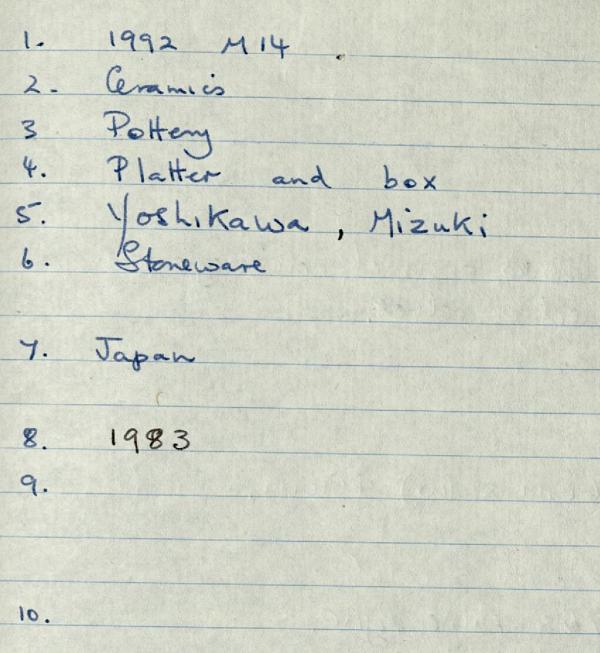 1. 1992 M14
2. Ceramics
3 Pottery
4. Platter and box
5. Yoshikawa, Mizuki
6. Stoneware
7. Japan
8. 1983
9.
10.